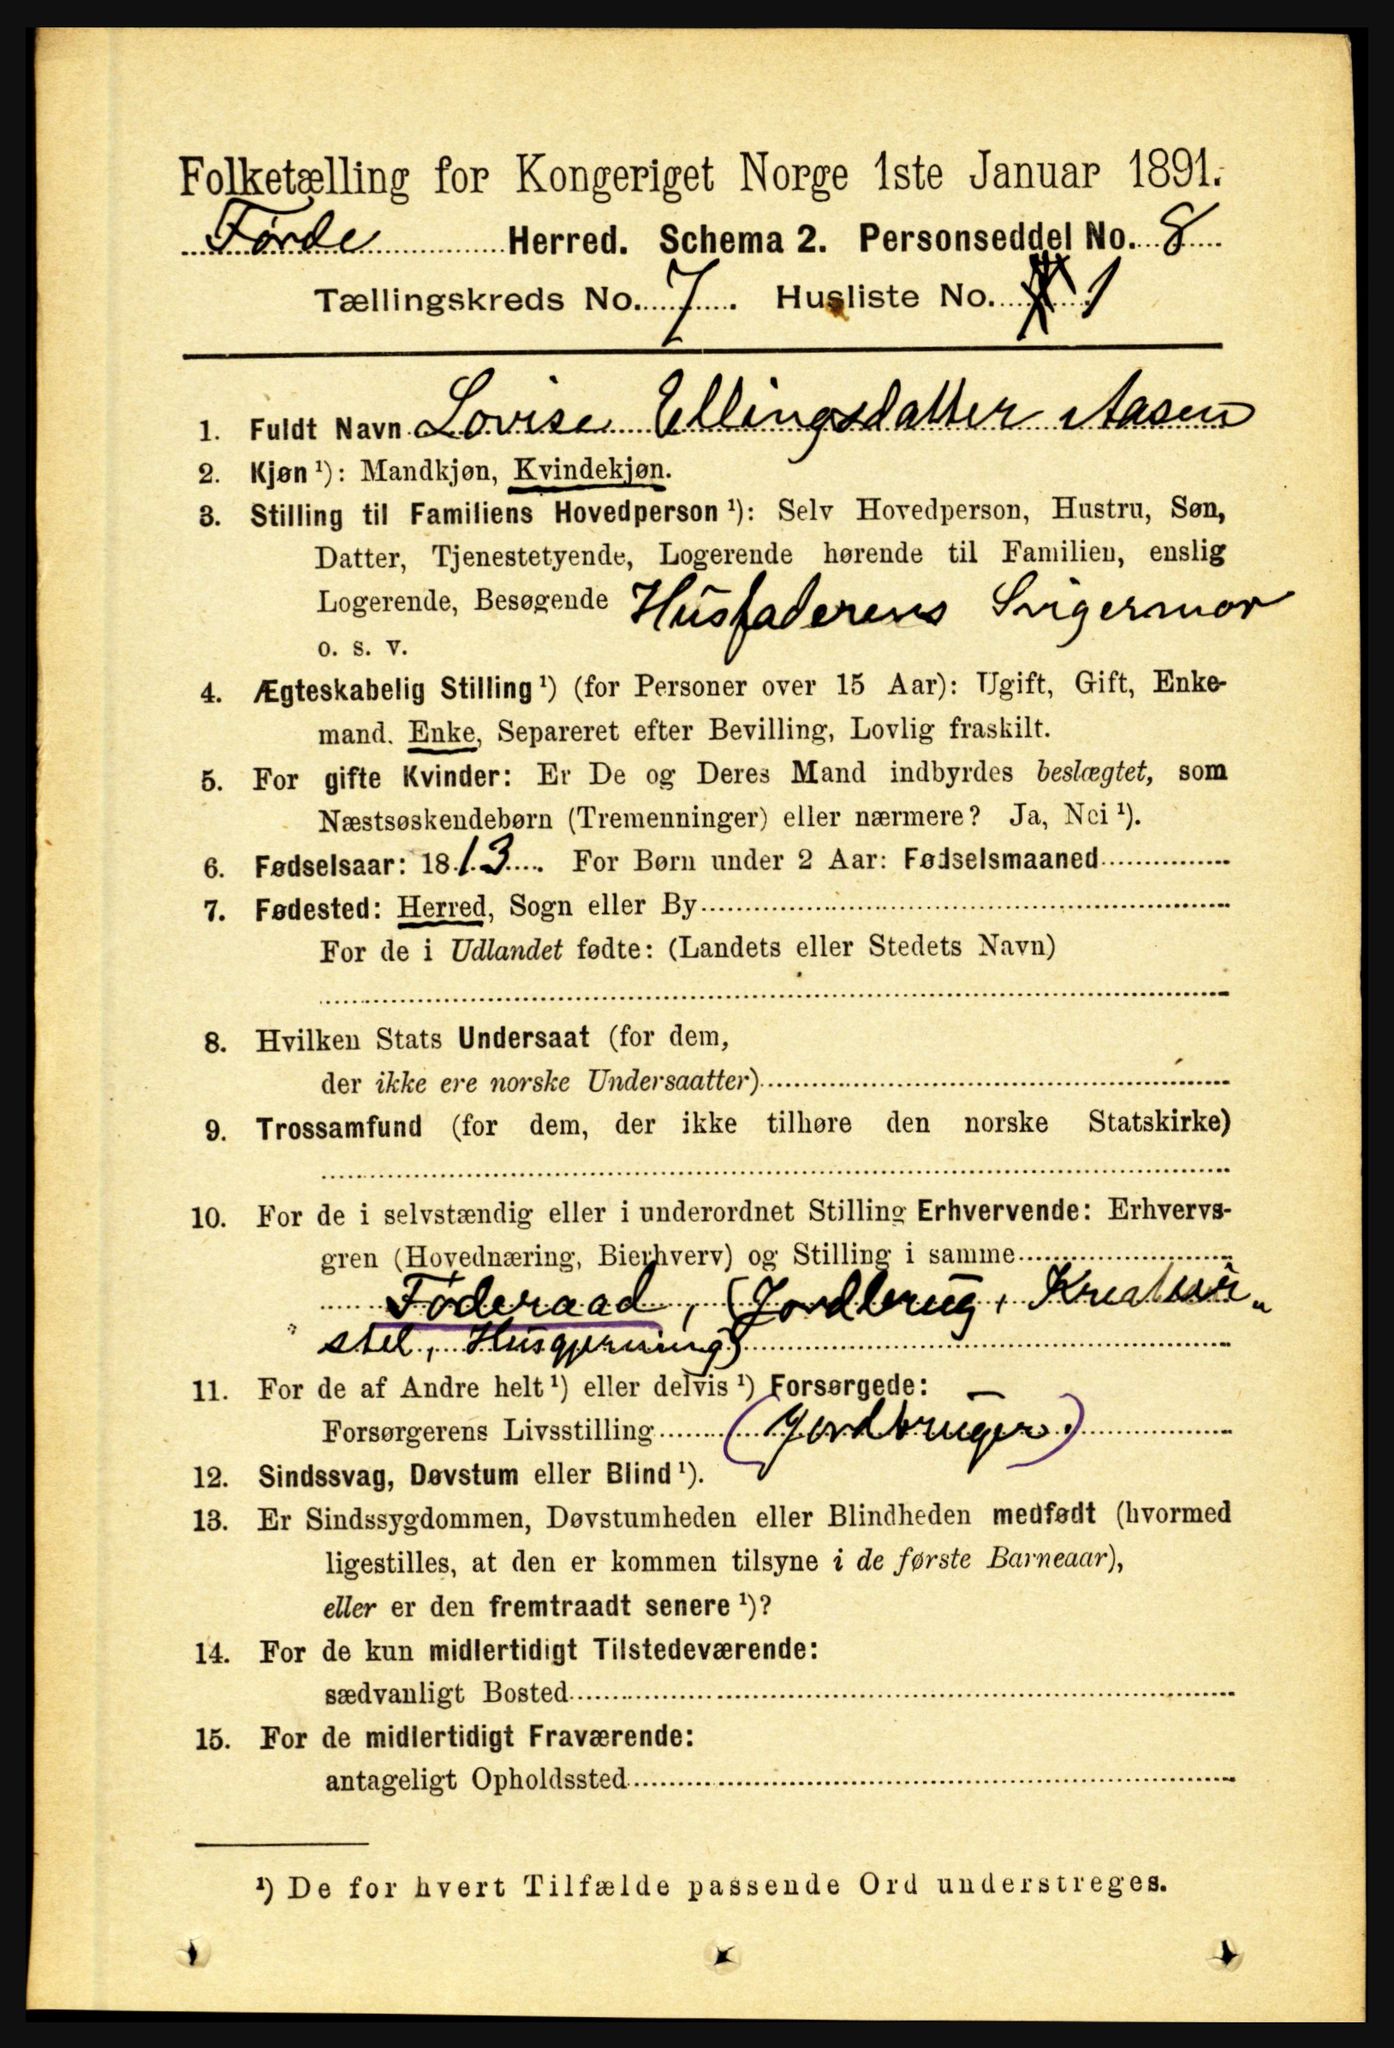 Folketælling for Kongeriget Norge 1ste Januar 1891.
Førde Herred. Schema 2. Personseddel No. 8
Tællingskreds No. 7. Husliste No. 1
1. Fuldt Navn Lovise Ellingsdatter Aasen
2. Kjøn ¹): Mandkjøn, Kvindekjøn.
3. Stilling til Familiens Hovedperson ¹): Selv Hovedperson, Hustru, Søn,
Datter, Tjenestetyende, Logerende hørende til Familien, enslig
Logerende, Besøgende Husfaderens Svigermor
o. s. v.
4. Ægteskabelig Stilling ¹) (for Personer over 15 Aar): Ugift, Gift, Enke-
mand, Enke, Separeret efter Bevilling, Lovlig fraskilt.
5. For gifte Kvinder: Er De og Deres Mand indbyrdes beslægtet, som
Næstsøskendebørn (Tremenninger) eller nærmere? Ja, Nei ¹).
6. Fødselsaar: 1813. For Børn under 2 Aar: Fødselsmaaned
7. Fødested: Herred, Sogn eller By
For de i Udlandet fødte: (Landets eller Stedets Navn)
8. Hvilken Stats Undersaat (for dem,
der ikke ere norske Undersaatter)
9. Trossamfund (for dem, der ikke tilhøre den norske Statskirke)
10. For de i selvstændig eller i underordnet Stilling Erhvervende: Erhvervs-
gren (Hovednæring, Bierhverv) og Stilling i samme
Føderaad, (Jordbrug, Kreatur„
stel, Husgjerning)
11. For de af Andre helt ¹) eller delvis ¹) Forsørgede:
Forsørgerens Livsstilling (Jordbruger.)
12. Sindssvag, Døvstum eller Blind ¹).
13. Er Sindssygdommen, Døvstumheden eller Blindheden medfødt (hvormed
ligestilles, at den er kommen tilsyne i de første Barneaar),
eller er den fremtraadt senere ¹)?
14. For de kun midlertidigt Tilstedeværende:
sædvanligt Bosted
15. For de midlertidigt Fraværende:
antageligt Opholdssted
¹) De for hvert Tilfælde passende Ord understreges.